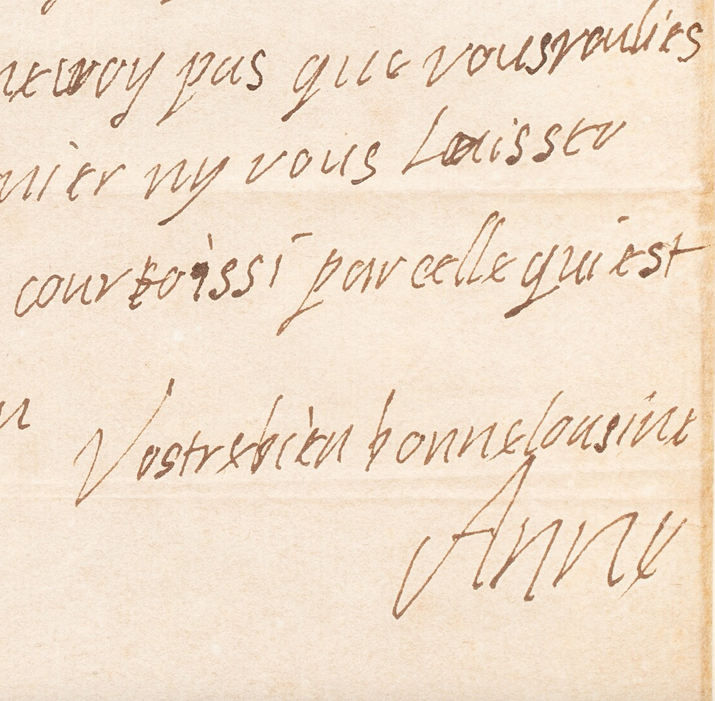 ne voy pas que vous voulies
nier ny vous laisser
courtoissi par celle qui est
Vostre bien bonne Cousine
Anne